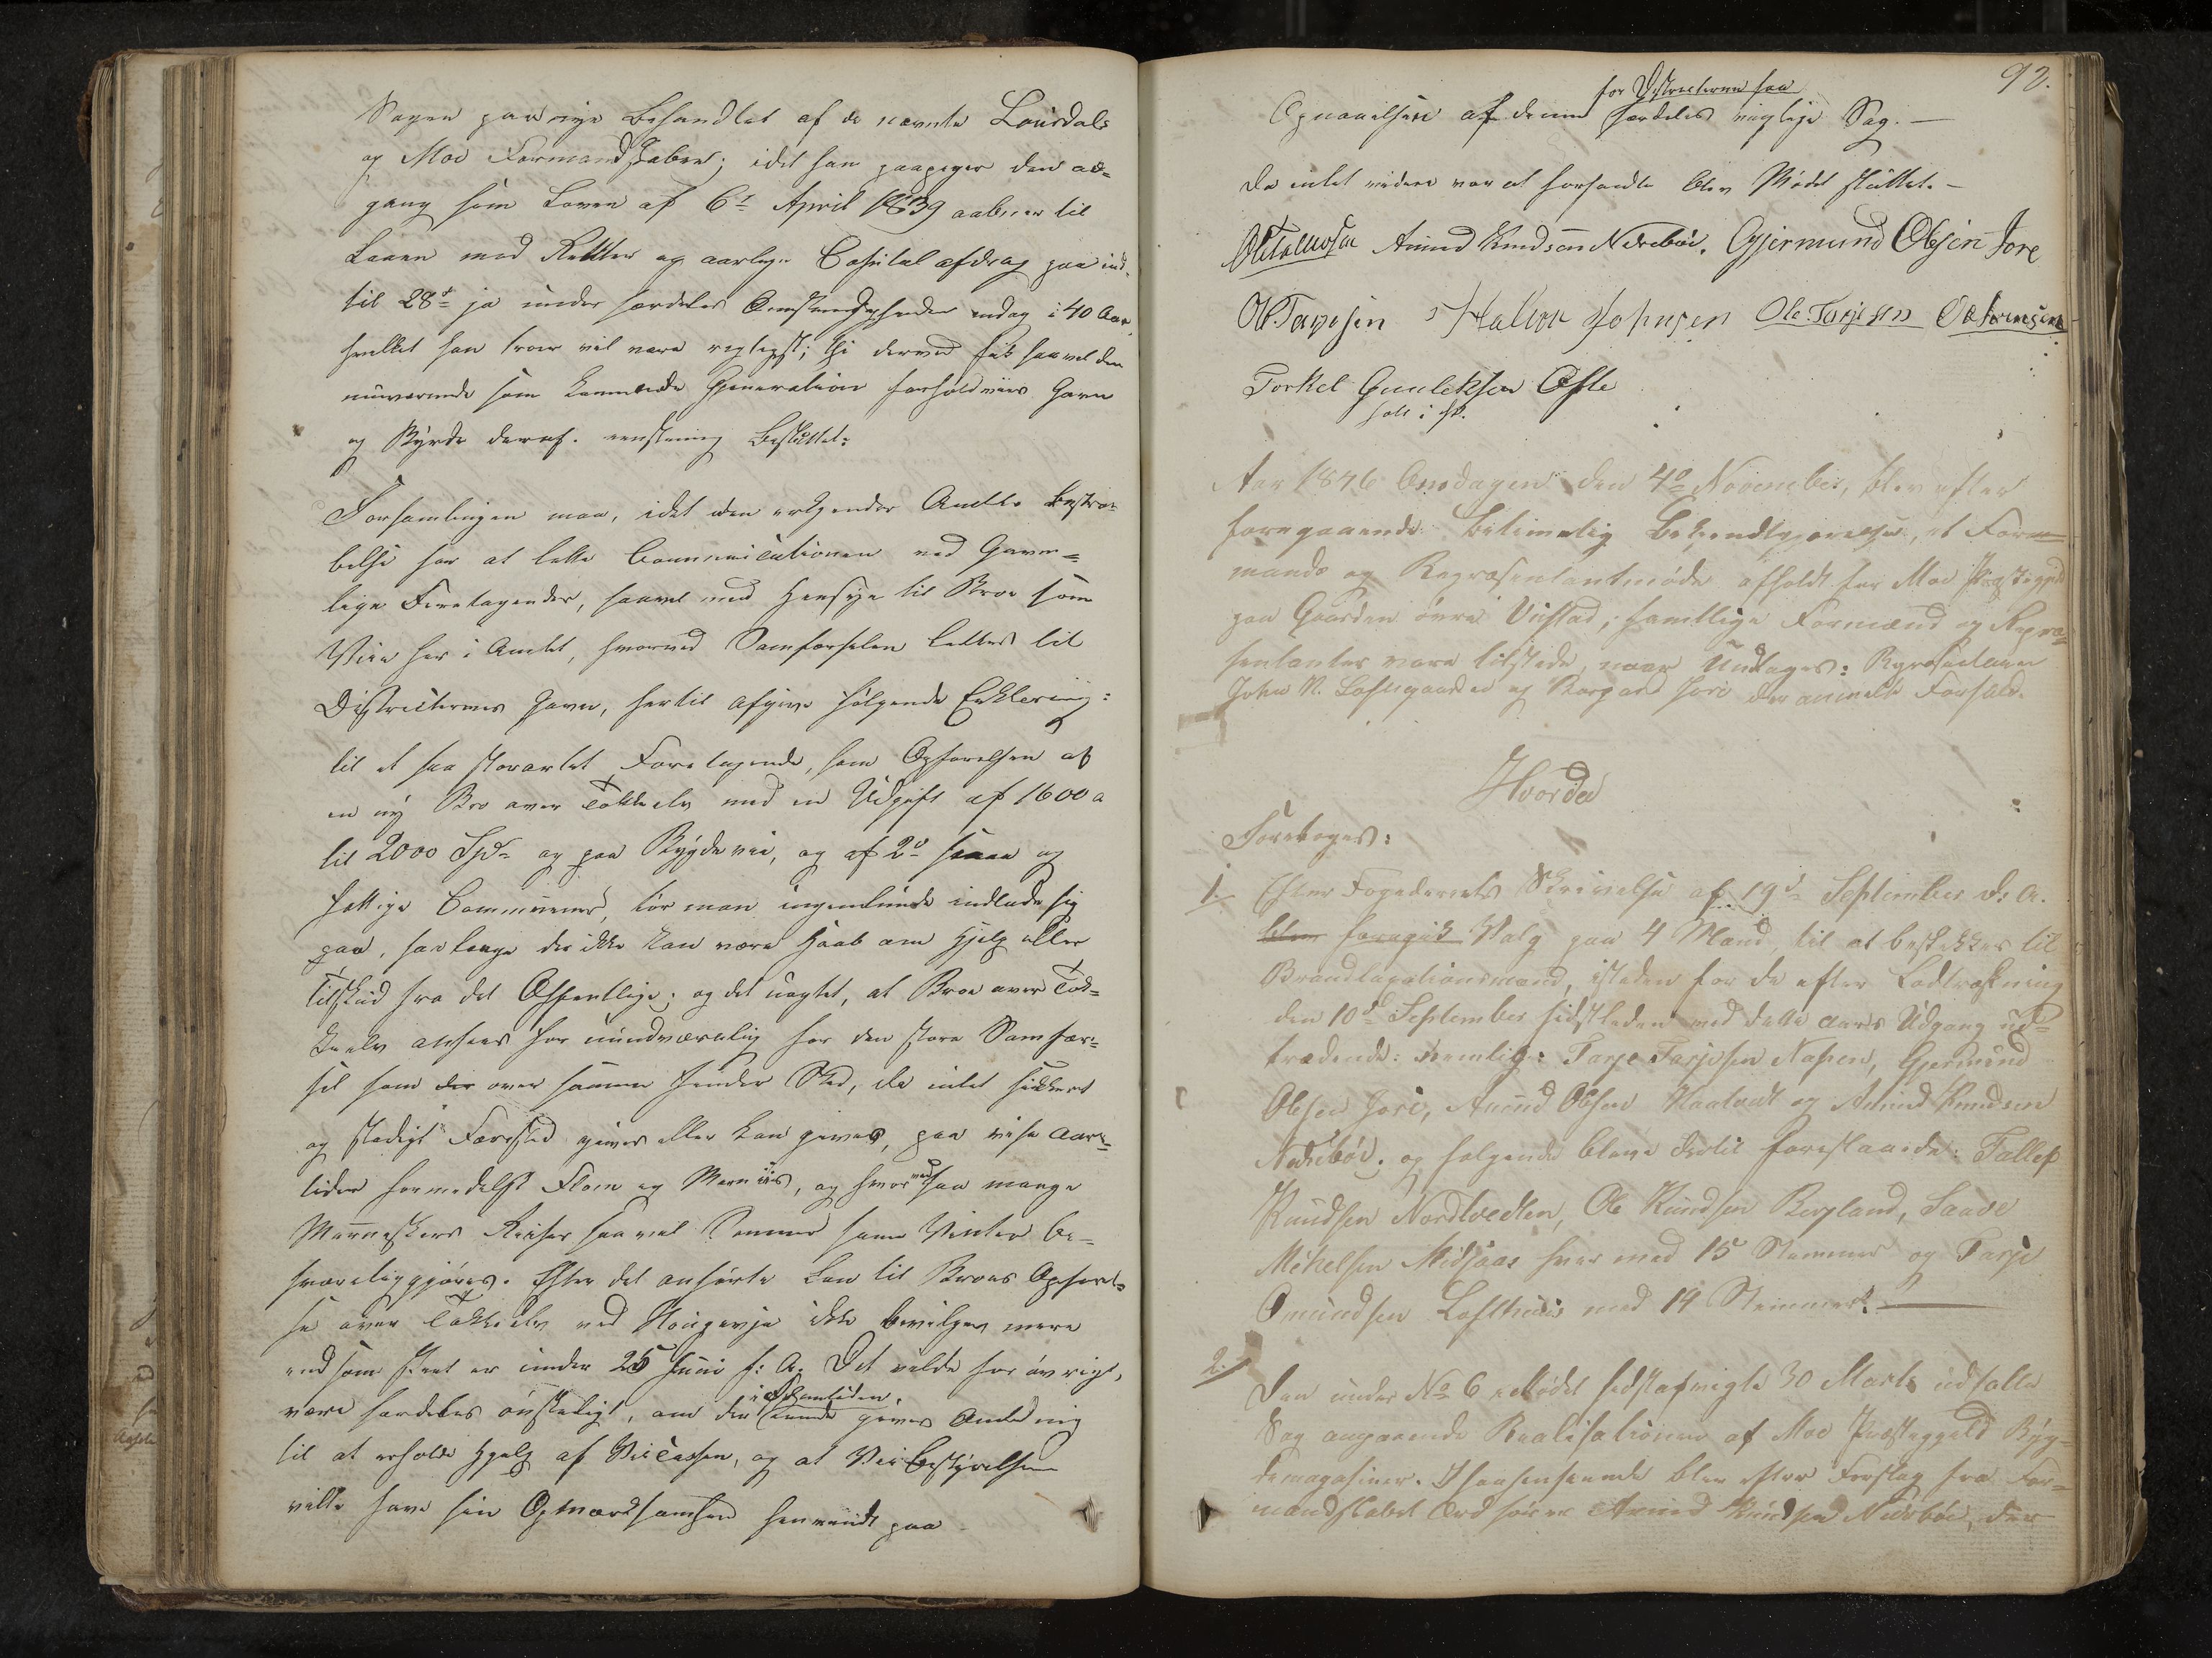 Sagen paa nye Behandlet af de nævnte Lourdals
og Moe Formandskaber; idet han paapeger den ad=
gang som Loven af 6te April 1839 aabner til
Laan med Renter og aarlige Capital afdrag paa ind=
til 28d ja under særdeles Omstændigheder endog i 40 Aar,
hvilket han troer vil være rigtigst; thi derved fik saavel den
nuværende som kommende Generation forholdsviis Gavn
og Byrde deraf. eenstemmig Besluttet:
Forsamlingen maa, idet den erkjender Amtets Bestræ=
belse for at lette Communicationen ved Gavn=
lige Foretagender, saavel med Hensyn til Broe som
Veie her i Amtet, hvorved Samfærselen lettes til
Districternes Gavn, hertil afgive følgende Erklæring:
til et saa storartet Foretagende, som Opførelsen af
en ny Bro over Tokkeelv med en Udgift af 1600 a
til 2000 Spd og paa Bygdevei, og af 2de smaa og
fattige Communer, tør man ingenlunde indlade sig
paa, saalænge der ikke kan være Haab om Hjelp eller
Tilskud fra det Offentlige; og det uagtet, at Broe over Tok=
keelv ansees for uundværelig for den store Samfær=
sel som der over samme finder Sted, da intet sikkert
og stadigt Færsted gives eller kan gives, paa visse Aars=
tider formedelst Flom og Meeniis, og hvorved saa mange
Menneskers Reiser saavel Sommer som Vinter be=
sværeliggjøres. Efter det anførte kan til Broes Opførel=
se over Tokkeelv ved Hougevje ikke bevilges mere
end som skeet er under 25 Juni f: A. Det vilde for øvrigt,
være særdeles ønskeligt, om der i Fremtiden kunde gives Anledning
til at erholde Hjelp af Veicassen, og at Veibestyrelsen
vilde have sin Opmærksomhed henvendt paa
92.
Opnaaelsen af denne for Districterne saa særdeles vigtige Sag. —
Da intet videre var at forhandle blev Mødet sluttet. —
Aanund Knudsen Nedrebøe. Gjermund Olsen Jore
Ol. Tarjesen Halvor Johnsen Ole Tarjesen
Torkel Gunleksen Ofte
Aar 1846 Onsdagen den 4de November, blev efter
foregaaende betimelig Bekjendtgjørelse, et For=
mands og Repræsentantmøde afholdt for Moe Præstegjeld
paa Gaarden øvre Vistad; samtlige Formænd og Repræ=
sentanter vare tilstede, naar Undtages: Repræsentanten
John N. Loftsgaarden og Borgard Jore der anmeldte Forfald.
Hvorda
Foretoges:
1. Efter Fogederiets Skrivelse af 19de September d: A.
blev foregik Valg paa 4 Mænd til at beskikkes til
Brandtaxationsmænd, isteden for de efter Lodtrækning
den 10de September sidstleden ved dette Aars Udgang ud=
trædende: nemlig: Tarje Tarjesen Napen, Gjermund
Olsen Jore, Aanund Olsen Haatvedt og Aanund Knudsen
Nedrebøe; og følgende bleve dertil foreslaaede: Tallef
Knudsen Nordtvedten, Ole Knudsen Bergland, Saave
Mikelsen Midjaas hver med 15 Stemmer og Tarje
Omundsen Lofthuus med 14 Stemmer. —
2. Den under No 6 i Mødet sidstafvigte 30 Marts udsatte
Sag angaaende Realisationen af Moe Præstegjeld Byg=
demagasiner. I saahenseende blev efter Forslag fra For=
mandskabet Ordfører Aanund Knudsen Nedrebøe, der